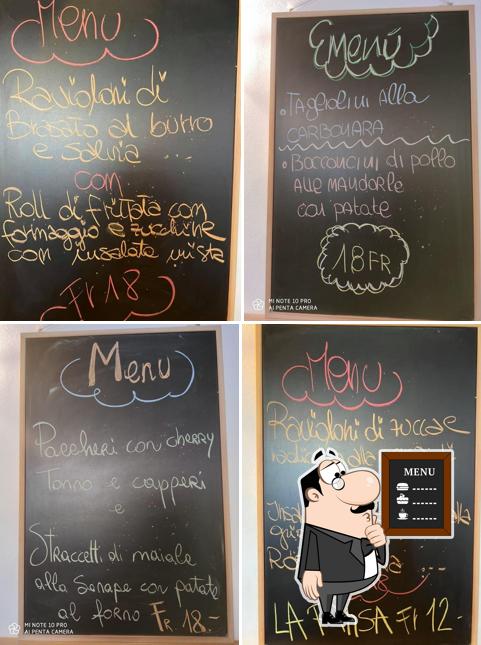 Menu
Ravioloni di
Brasato al burro
e salvia ...
con
Roll di frittata con
formaggio e zucchine
con insalata mista
Fr 18
Menú
• Tagliolini alla
CARBONARA
• Bocconcini di pollo
alle mandorle
con patate
18 FR
MI NOTE 10 PRO
AI PENTA CAMERA
Menu
Paccheri con cherry
Tonno e capperi
e
Straccetti di maiale
alla Senape con patate
al forno Fr. 18.-
MI NOTE 10 PRO
AI PENTA CAMERA
Menu
Ravioloni di zucca e
alla
MENU
LA Fr 12-